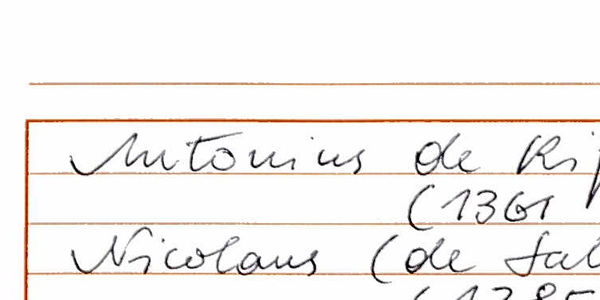 Antonius de Rip
(1361
Nicolaus (de Sal
(1385